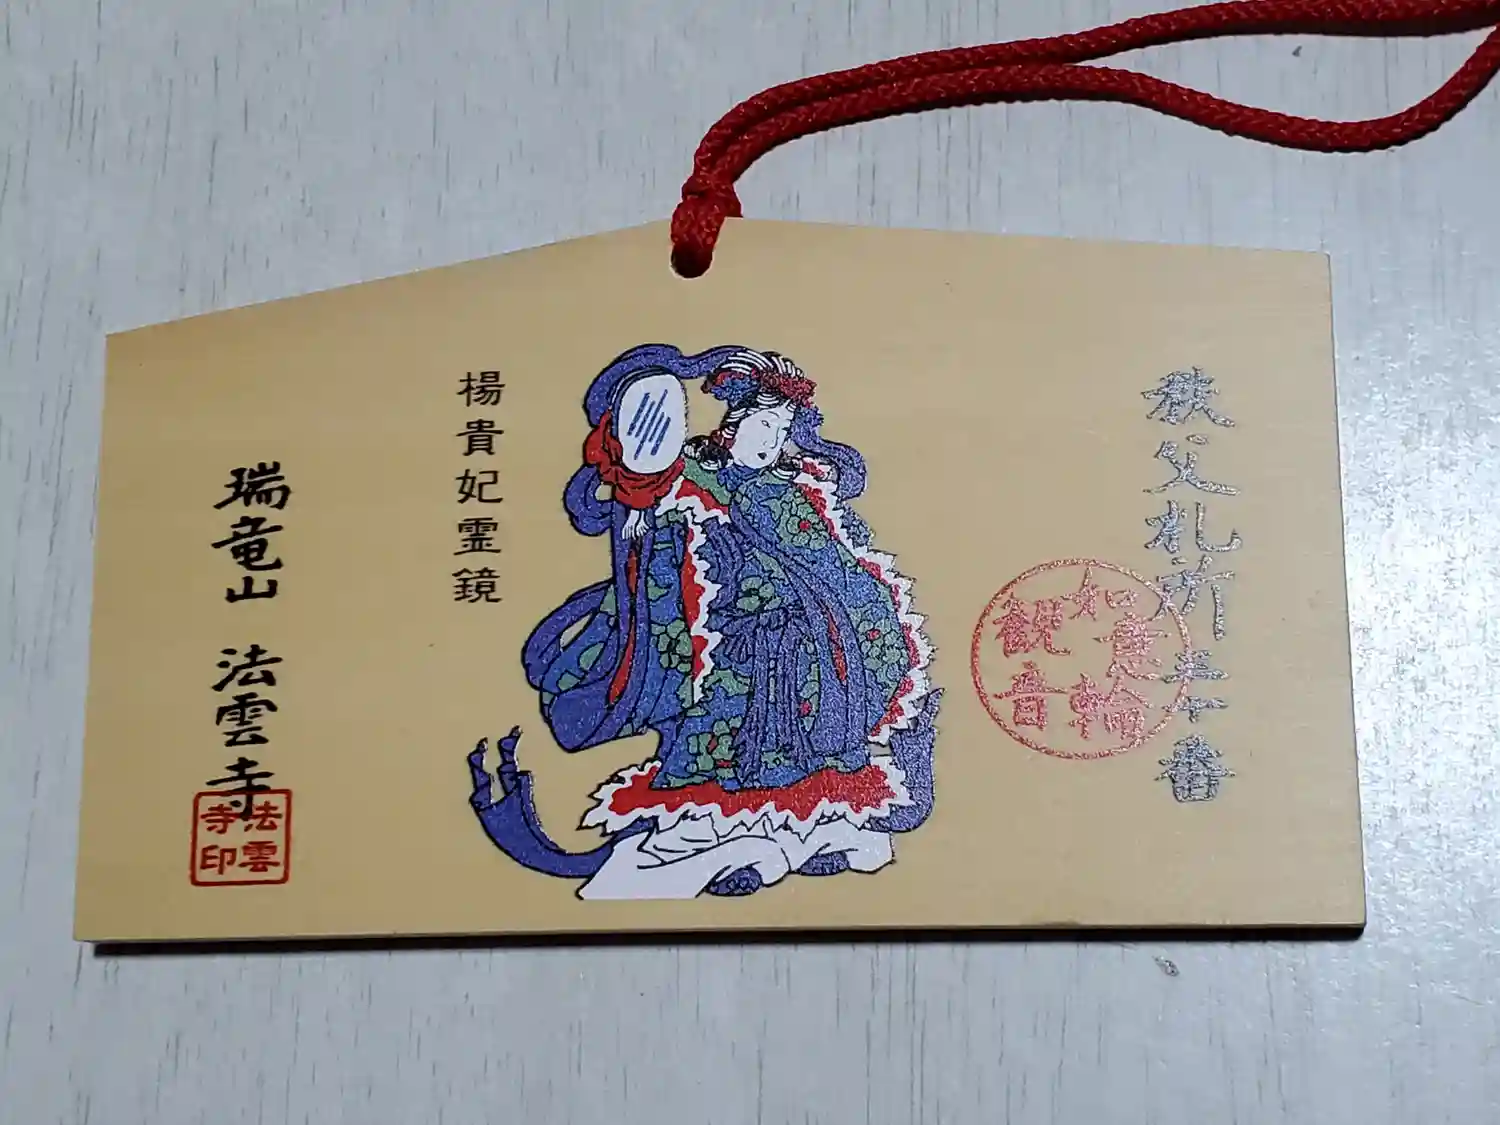 秩父札所三十番
如意輪
観音
楊貴妃霊鏡
瑞竜山 法雲寺
法雲
寺印